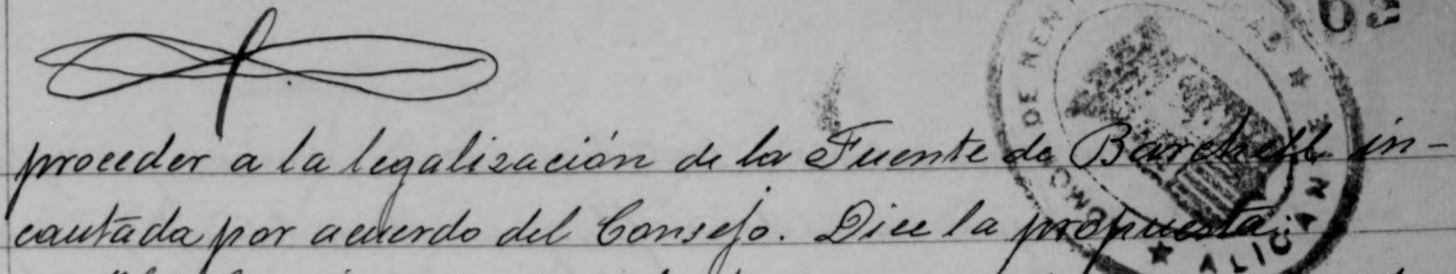 proceder a la legalisación de la Fuente de Barchell in-
cautada por acuerdo del Consejo. Dice la propuesta:
ALICAN